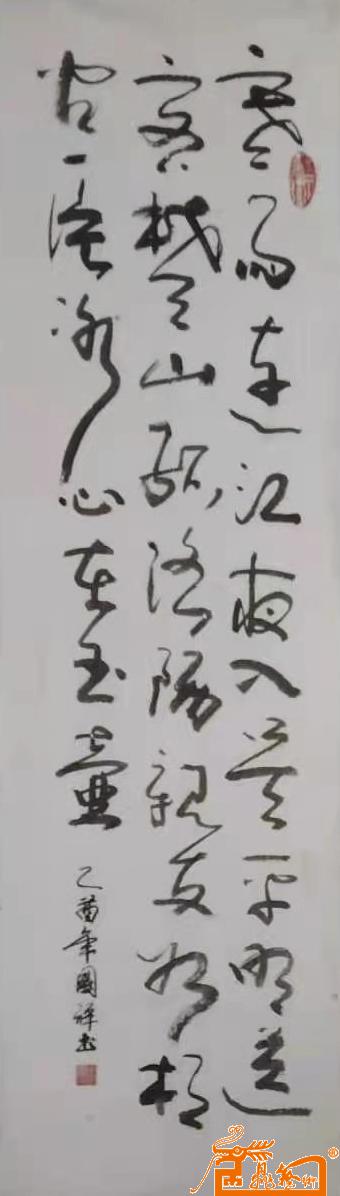 寒雨连江夜入吴平明送
客楚山孤洛阳亲友如相
问一片冰心在玉壶
乙酉年國祥书